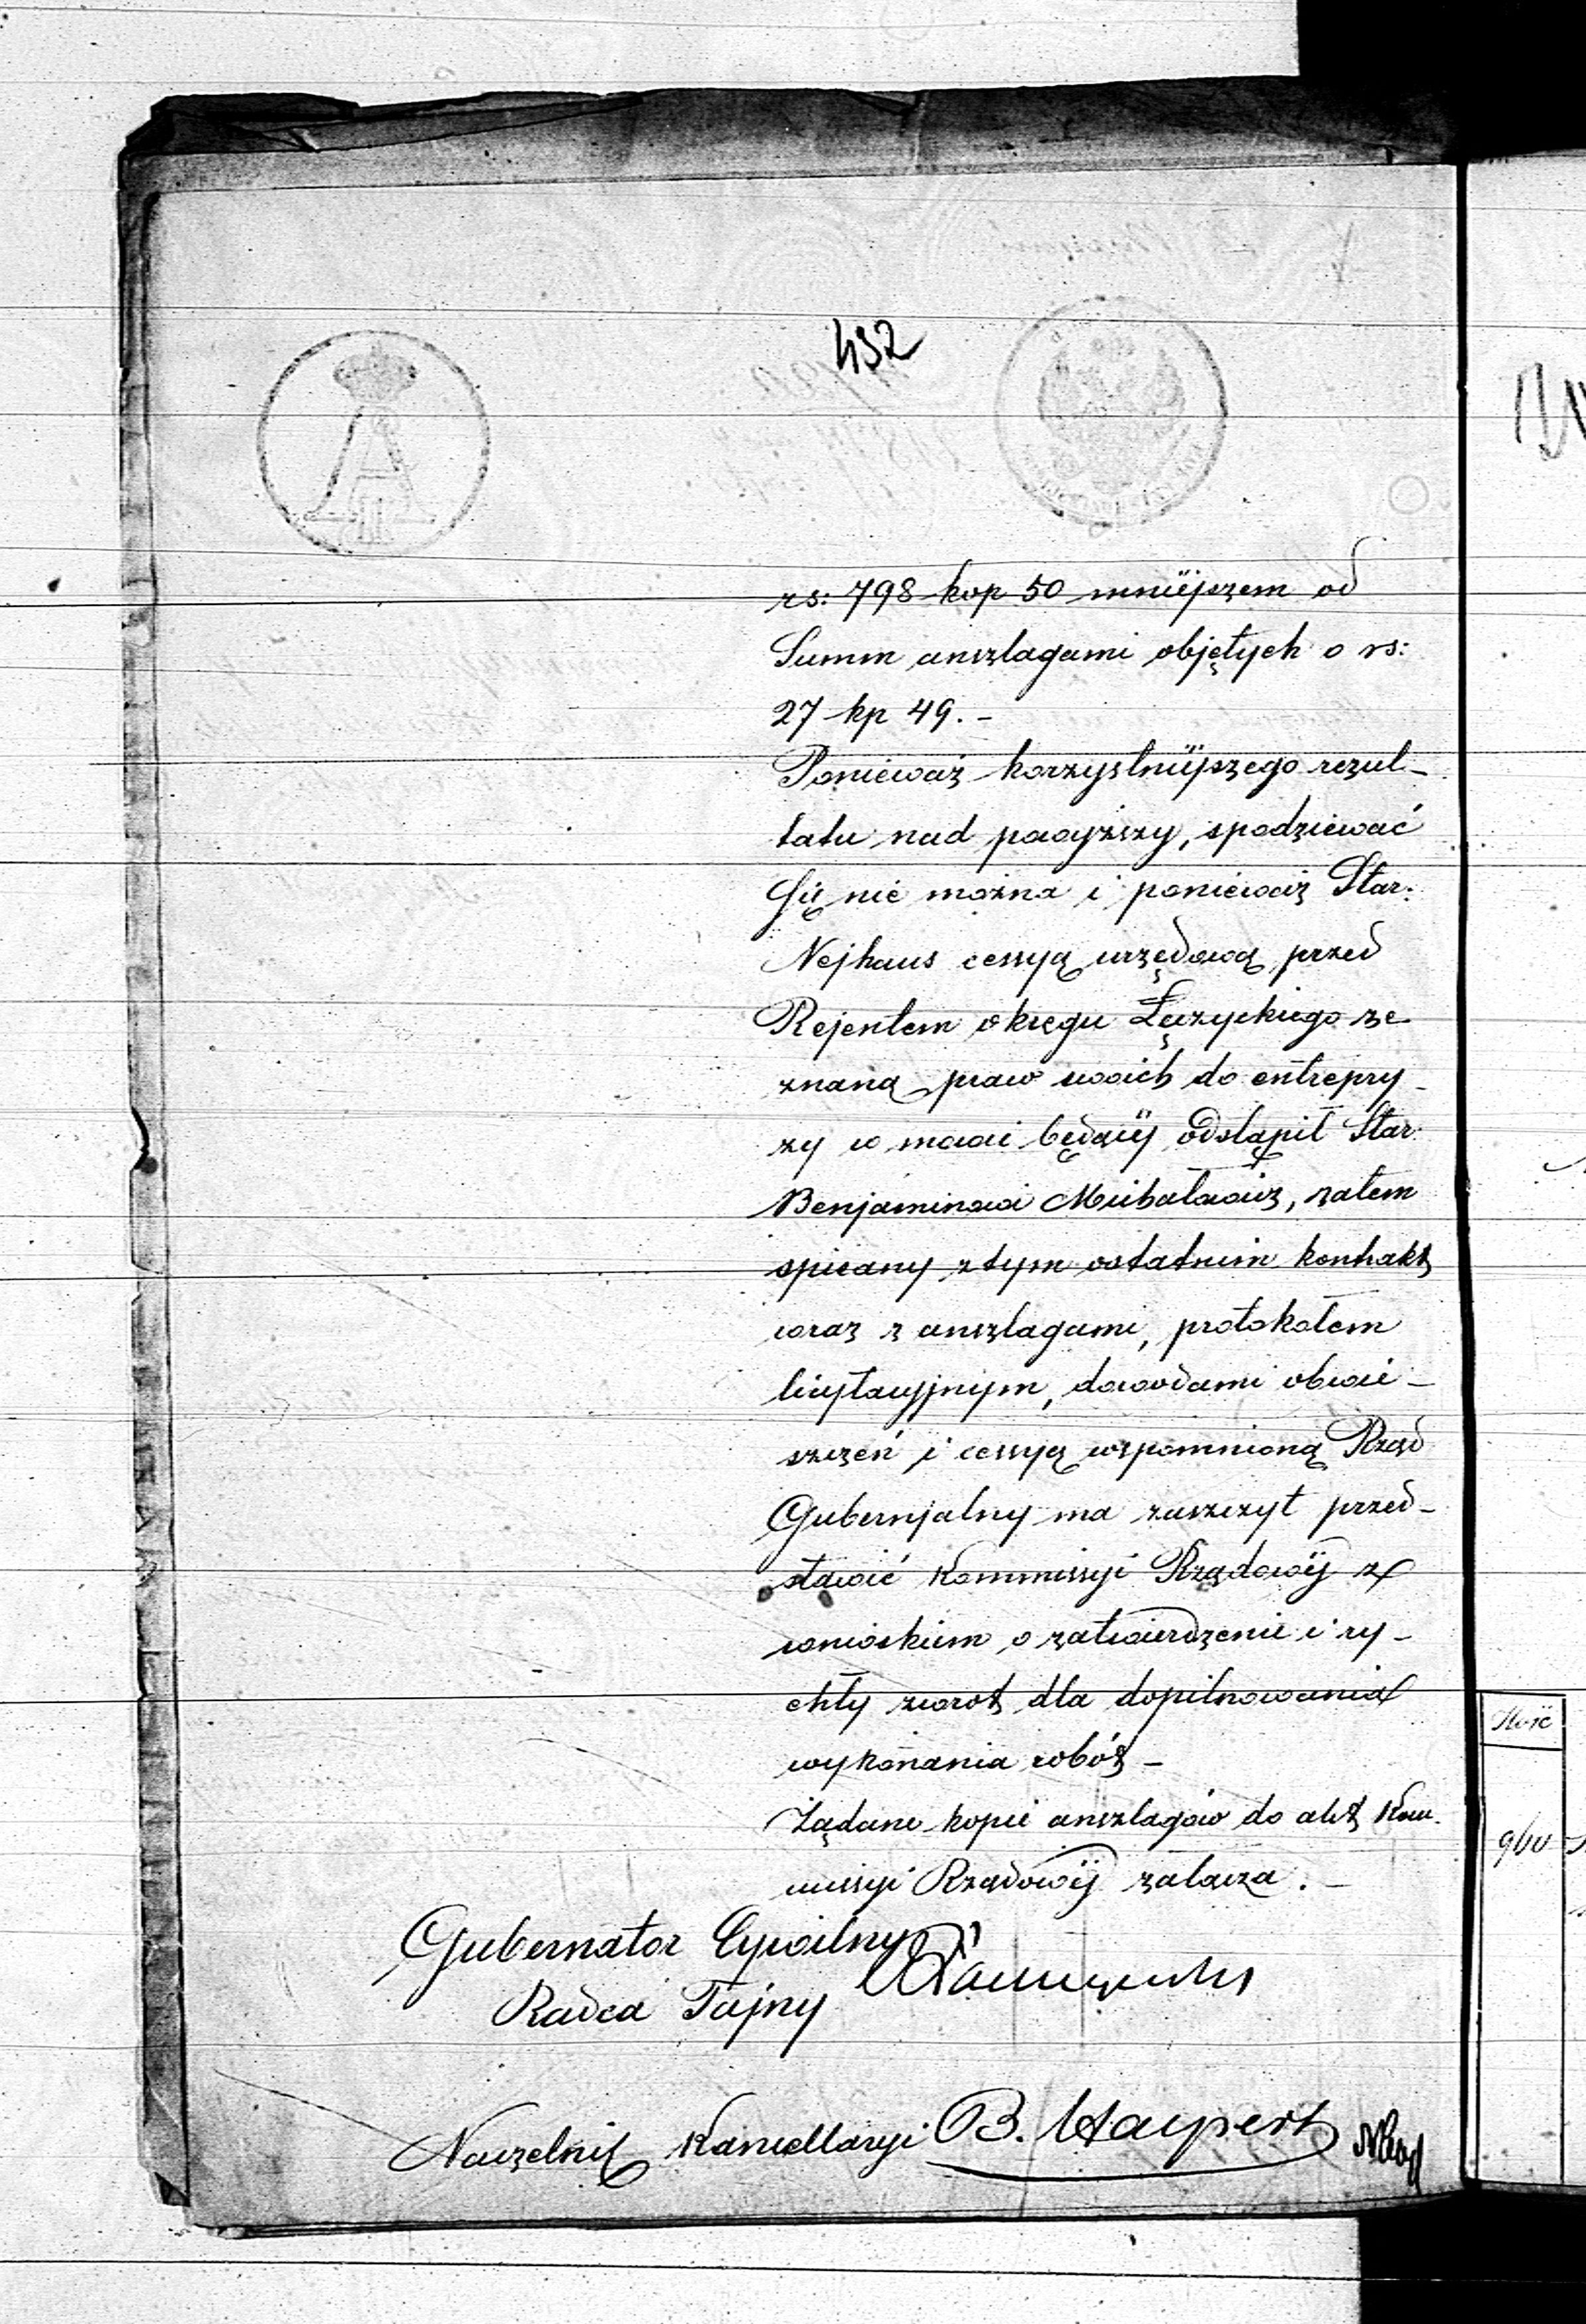 432
rs: 798 kop 50 mniéjszem od
Summ anszlagami objętych o rs:
27 kp 49. -
Ponieważ korzystniéjszego rezul-
tatu nad powyższy, spodziewać
się nie można i ponieważ Star:
Nejhaus cessyą urzędową przed
Rejentem okręgu Łęczyckiego ze
znaną praw swoich do entrepry-
zy w mowie będącéj odstąpił Star:
Benjaminowi Michałowicz, zatem
spisany z tym ostatnim kontrakt
wraz z anszlagami, protokołem
licytacyjnym, dowodami obwie-
szczeń i cessyą wspomnioną Rząd
Gubernjalny ma zaszczyt przed-
stawić Kommissyi Rządowéj z
wnioskiem o zatwierdzenie i ry-
chły zwrot dla dopilnowania
wykonania robót -
Żądane kopie anszlagów do akt Kom-
missyi Rządowéj załącza. -
Gubernator Cywilny
Radca Tajny
Naczelnik Kancellaryi B. Haypert
Ilość
960